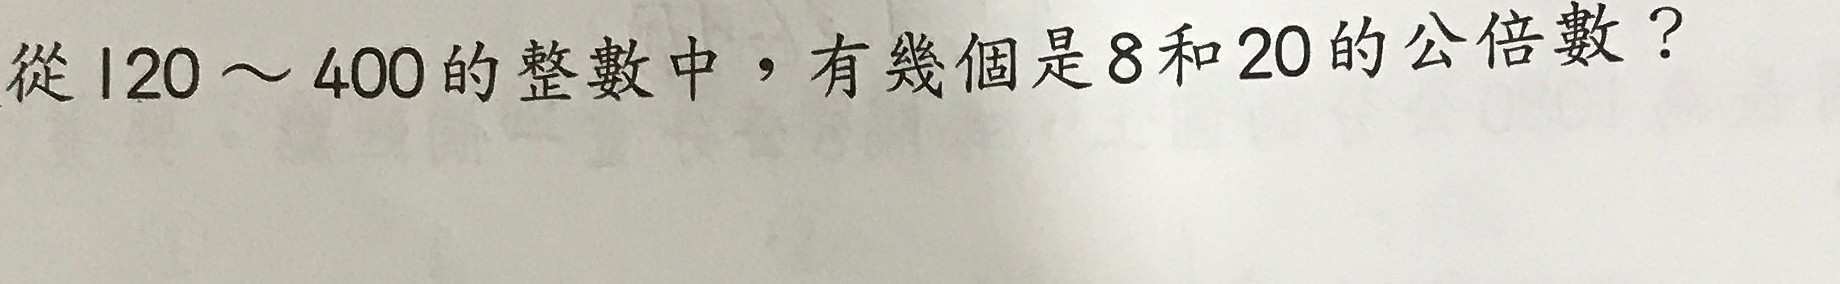 從120～400的整數中，有幾個是8和20的公倍數？